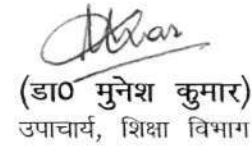 (डा0 मुनेश कुमार)
उपाचार्य, शिक्षा विभाग